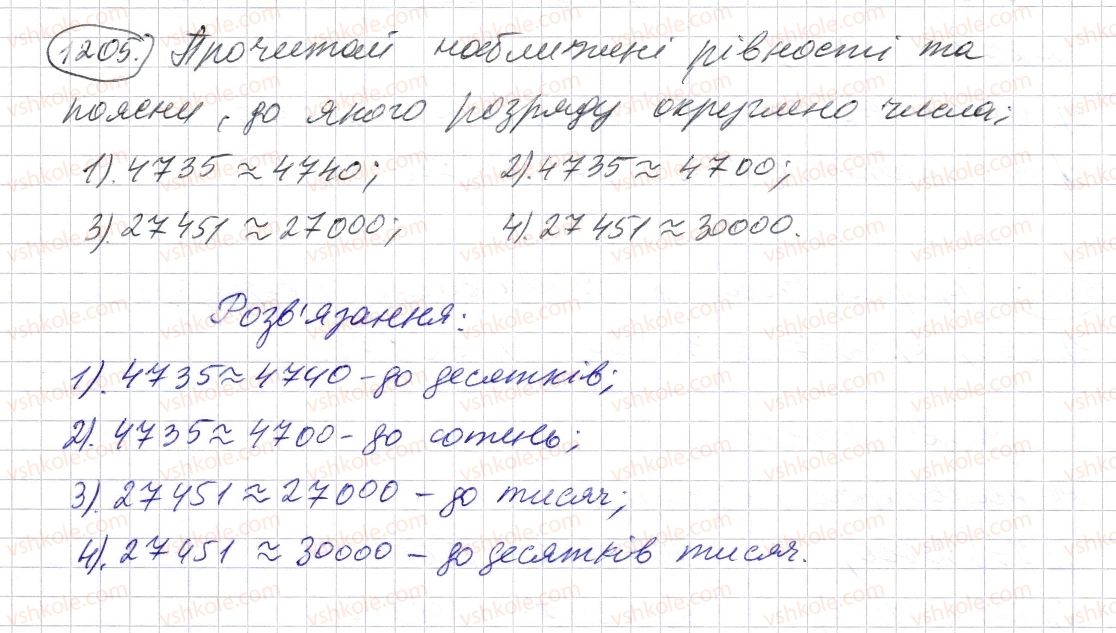 1205. Прочитай наближені рівності та
поясни, до якого розряду округлено числа;
1). 4735 ≈ 4740; 2). 4735 ≈ 4700;
3). 27451 ≈ 27000; 4). 27451 ≈ 30000.
Розв'язання:
1). 4735 ≈ 4740 - до десятків;
2). 4735 ≈ 4700 - до сотень;
3). 27451 ≈ 27000 - до тисяч;
4). 27451 ≈ 30000 - до десятків тисяч.